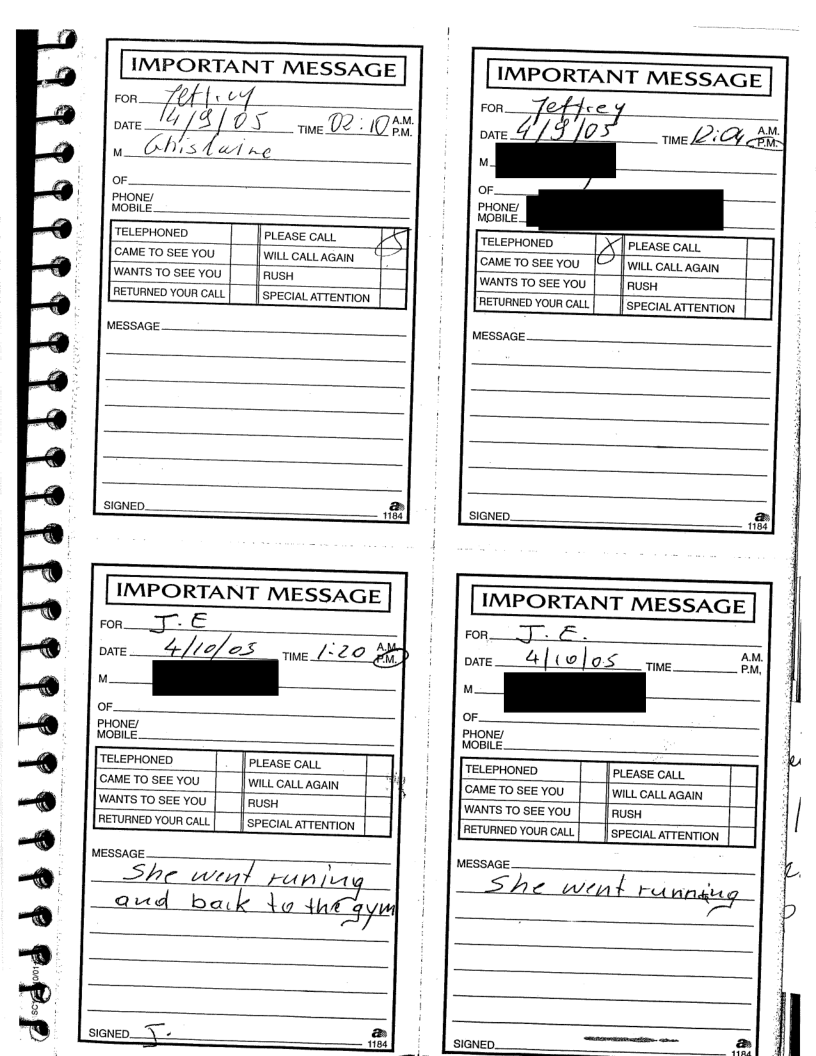 IMPORTANT MESSAGE
FOR Jeffrey
DATE 4/9/05 TIME 02:10 A.M. P.M.
M Ghislaine
OF
PHONE/
MOBILE
TELEPHONED PLEASE CALL
CAME TO SEE YOU WILL CALL AGAIN
WANTS TO SEE YOU RUSH
RETURNED YOUR CALL SPECIAL ATTENTION
MESSAGE
SIGNED
a
1184
IMPORTANT MESSAGE
FOR Jeffrey
DATE 4/9/05 TIME 12:04 A.M. P.M.
M
OF
PHONE/
MOBILE
TELEPHONED PLEASE CALL
CAME TO SEE YOU WILL CALL AGAIN
WANTS TO SEE YOU RUSH
RETURNED YOUR CALL SPECIAL ATTENTION
MESSAGE
SIGNED
a
1184
IMPORTANT MESSAGE
FOR J. E
DATE 4/10/05 TIME 1:20 A.M. P.M.
M
OF
PHONE/
MOBILE
TELEPHONED PLEASE CALL
CAME TO SEE YOU WILL CALL AGAIN
WANTS TO SEE YOU RUSH
RETURNED YOUR CALL SPECIAL ATTENTION
MESSAGE
She went runing
and back to the gym
SIGNED J.
a
1184
IMPORTANT MESSAGE
FOR J. E.
DATE 4/10/05 TIME A.M. P.M,
M
OF
PHONE/
MOBILE
TELEPHONED PLEASE CALL
CAME TO SEE YOU WILL CALL AGAIN
WANTS TO SEE YOU RUSH
RETURNED YOUR CALL SPECIAL ATTENTION
MESSAGE
She went running
SIGNED
a
1184